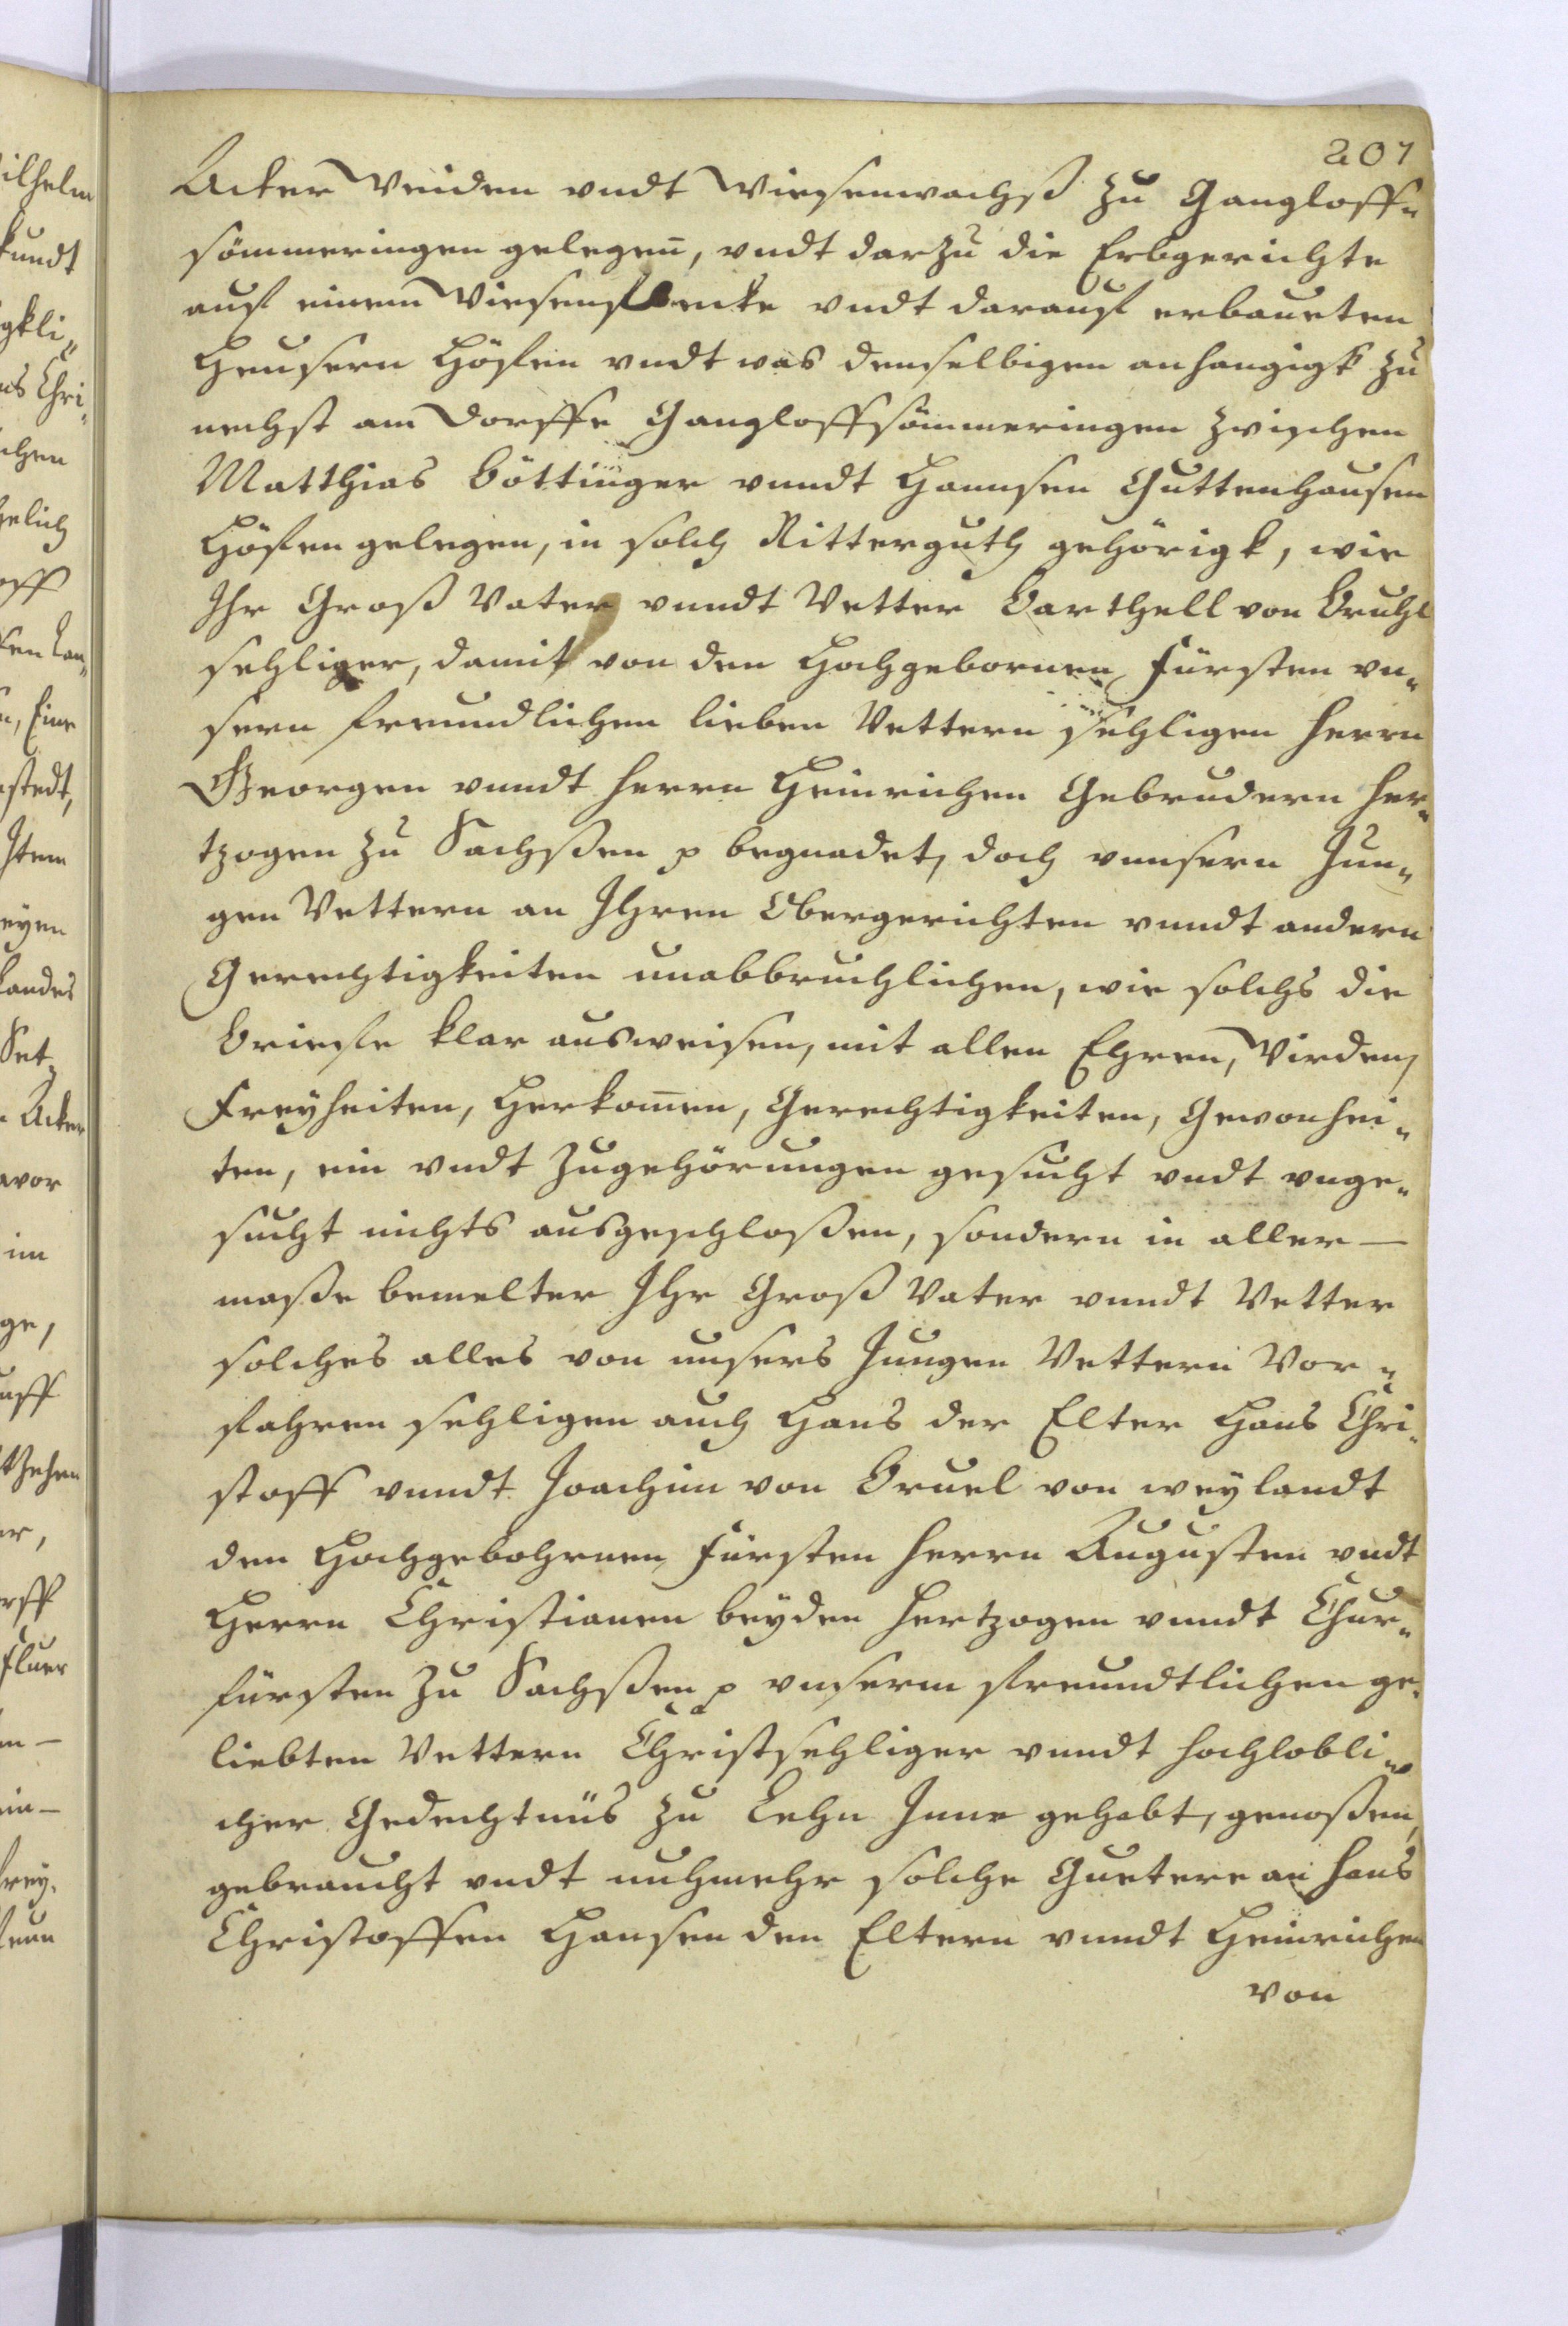 207
Acker Weiden vndt Wiesenwachß zu Gangloff-
sömmeringen gelegen̄, vndt darzu die Erbgerichte
auf einem Wiesenflecke vndt darauf erbaueten
Heusern Höfen vndt was denselbigen anhangigk zu
nechst am Dorffe Gangloffsömmeringen zwischen
Matthias Böttinger vnndt Hannsen Guttenhausen
Höfen gelegen, in solch Ritterguth gehörigk, wie
Ihr Groß Vater vnndt Vetter Barthell von Bruhl
sehliger, damit von den Hochgebornen Fürsten vn-
sern freundlichen lieben Vettern sehligen Herrn
Georgen vnndt Herrn Heinrichen Gebrudern Her-
tzogen zu Sachßen p begnadet, doch vnnsern Jun-
gen Vettern an Ihren Obergerichten vnndt andern
Gerechtigkeiten unabbruchlichen, wie solchs die
Briefe klar ausweisen, mit allen Ehren, Wirden,
Freyheiten, Herkom̄en, Gerechtigkeiten, Gewonhei-
ten, ein vndt Zugehörungen gesucht vndt vnge-
sucht nichts ausgeschloßen, sondern in aller-
maße bemelter Ihr Groß Vater vnndt Vetter
solches alles von unsers Jungen Vettern Vor-
fahren sehligen auch Hans der Elter Hans Chri-
stoff vnndt Joachim von Bruel von weylandt
den Hochgebohrnen Fürsten Herrn Augusten vndt
Herrn Christianen beyden Hertzogen vnndt Chur-
fürsten zu Sachßen p vnserm freundtlichen ge-
liebten Vettern Christsehliger vnndt hochlobli-
cher Gedechtnüs zu Lehn Inne gehabt, genoßen,
gebraucht vndt nuhmehr solche Guetere an Hans
Christoffen Hansen den Eltern vnndt Heinrichen
von